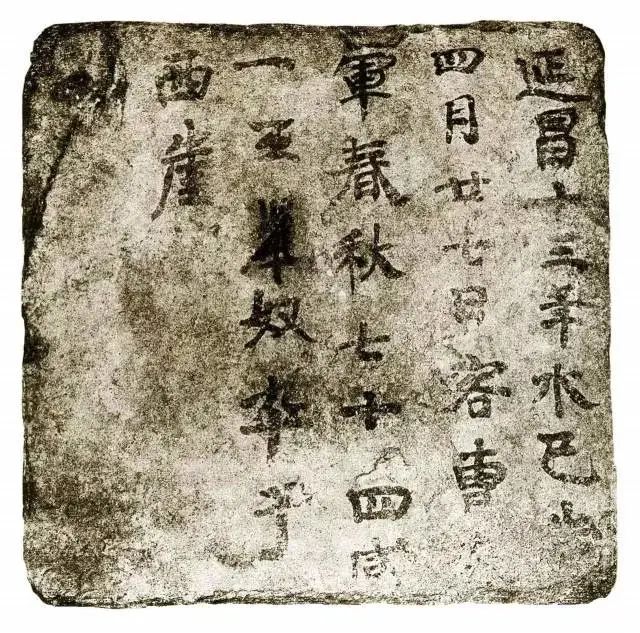 延昌十三年水巳
四月廿七日客曹
軍春秋七十四
一王奴卒于
西崖